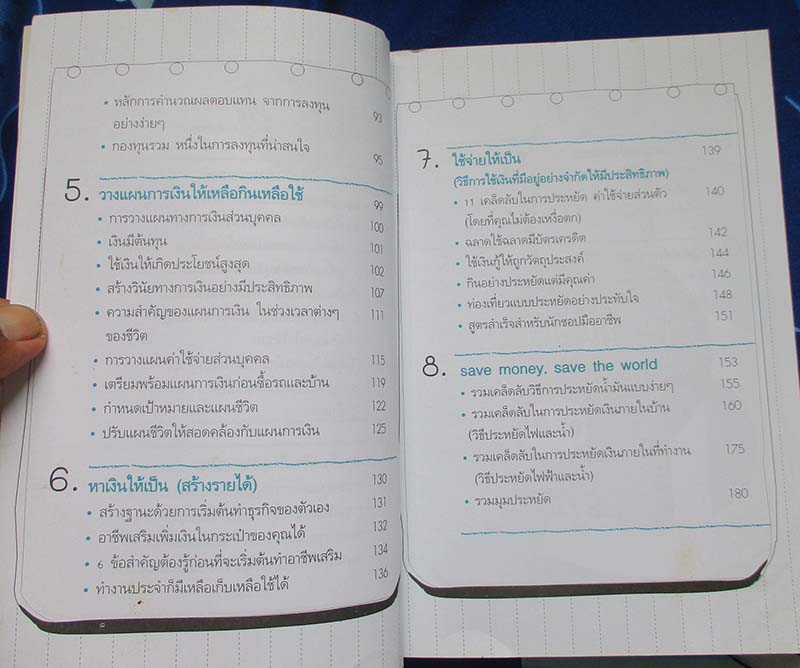 • หลักการคำนวณผลตอบแทน จากการลงทุน
อย่างง่ายๆ 93
• กองทุนรวม หนึ่งในการลงทุนที่น่าสนใจ 95
5. วางแผนการเงินให้เหลือกินเหลือใช้ 99
• การวางแผนทางการเงินส่วนบุคคล 100
• เงินมีต้นทุน 101
• ใช้เงินให้เกิดประโยชน์สูงสุด 102
• สร้างวินัยทางการเงินอย่างมีประสิทธิภาพ 107
• ความสำคัญของแผนการเงิน ในช่วงเวลาต่างๆ 111
ของชีวิต
• การวางแผนค่าใช้จ่ายส่วนบุคคล 115
• เตรียมพร้อมแผนการเงินก่อนซื้อรถและบ้าน 119
• กำหนดเป้าหมายและแผนชีวิต 122
• ปรับแผนชีวิตให้สอดคล้องกับแผนการเงิน 125
6. หาเงินให้เป็น (สร้างรายได้) 130
• สร้างฐานะด้วยการเริ่มต้นทำธุรกิจของตัวเอง 131
• อาชีพเสริมเพิ่มเงินในกระเป๋าของคุณได้ 132
• 6 ข้อสำคัญต้องรู้ก่อนที่จะเริ่มต้นทำอาชีพเสริม 134
• ทำงานประจำก็มีเหลือเก็บเหลือใช้ได้ 136
7. ใช้จ่ายให้เป็น 139
(วิธีการใช้เงินที่มีอยู่อย่างจำกัดให้มีประสิทธิภาพ)
• 11 เคล็ดลับในการประหยัด ค่าใช้จ่ายส่วนตัว 140
(โดยที่คุณไม่ต้องเหงื่อตก)
• ฉลาดใช้ฉลาดมีบัตรเครดิต 142
• ใช้เงินกู้ให้ถูกวัตถุประสงค์ 144
• กินอย่างประหยัดแต่มีคุณค่า 146
• ท่องเที่ยวแบบประหยัดอย่างประทับใจ 148
• สูตรสำเร็จสำหรับนักชอปมืออาชีพ 151
8. save money, save the world 153
• รวมเคล็ดลับวิธีการประหยัดน้ำมันแบบง่ายๆ 155
• รวมเคล็ดลับในการประหยัดเงินภายในบ้าน 160
(วิธีประหยัดไฟและน้ำ)
• รวมเคล็ดลับในการประหยัดเงินภายในที่ทำงาน 175
(วิธีประหยัดไฟฟ้าและน้ำ)
• รวมมุมประหยัด 180